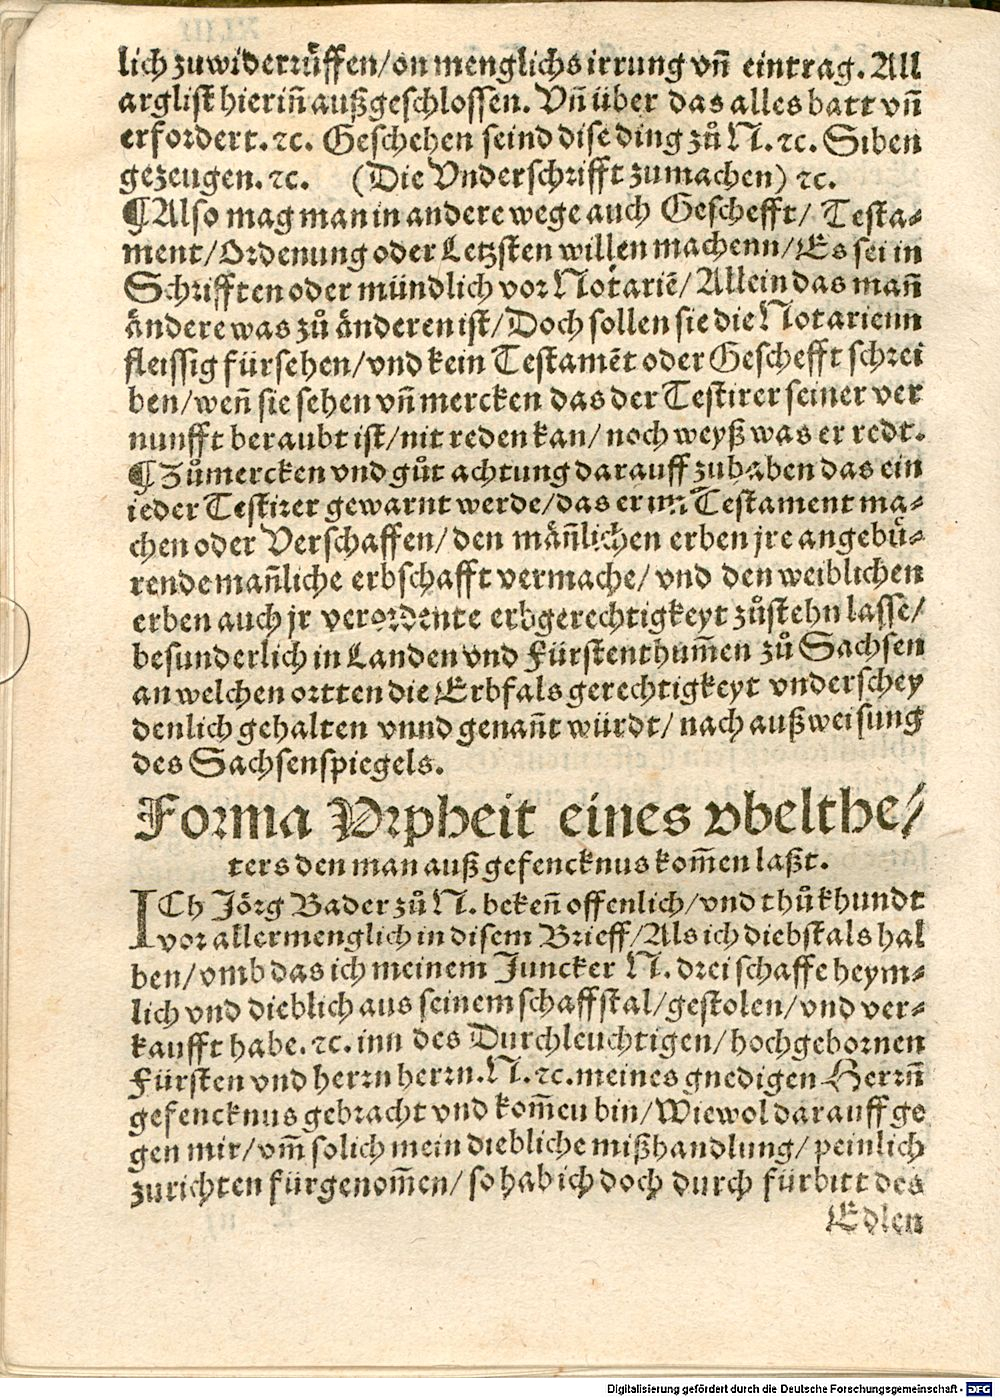 lich zuwiderrůffen/on menglichs irrung vñ eintrag. All
arglist hieriñ außgeschlossen. Vñ über das alles batt vñ
erfordert. ꝛc. Geschehen seind dise ding zů N. ꝛc. Siben
gezeugen. ꝛc. (Die Vnderschrifft zumachen) ꝛc.
¶Also mag man in andere wege auch Geschefft/ Testa-
ment/Ordenung oder Letzsten willen machenn/Es sei in
Schrifften oder mündlich vor Notariẽ/Allein das mañ
ändere was zů änderen ist/Doch sollen sie die Notarienn
fleissig fürsehen/vnd kein Testamẽt oder Geschefft schrei
ben/weñ sie sehen vñ mercken das der Testirer seiner ver
nunfft beraubt ist/nit reden kan/noch weyß was er redt.
¶Zůmercken vnd gůt achtung darauff zuhaben das ein
ieder Testirer gewarnt werde/das er im Testament ma-
chen oder Verschaffen/den mäñlichen erben jre angebü-
rende mañliche erbschafft vermache/vnd den weiblichen
erben auch jr verordente erbgerechtigkeyt zůstehn lasse/
besunderlich in Landen vnd Fürstenthum̃en zů Sachsen
an welchen ortten die Erbfals gerechtigkeyt vnderschey
denlich gehalten vnnd genañt würdt/nach außweisung
des Sachsenspiegels.
Forma Vrpheit eines vbelthe/
ters den man auß gefencknus kom̃en laßt.
ICh Jörg Bader zů N. bekeñ offenlich/vnd thůkhundt
vor allermenglich in disem Brieff/Als ich diebstals hal
ben/vmb das ich meinem Juncker N. drei schaffe heym-
lich vnd dieblich aus seinem schaffstal/gestolen/vnd ver-
kaufft habe. ꝛc. inn des Durchleuchtigen/hochgebornen
Fürsten vnd herrn herrn. N. ꝛc. meines gnedigen Herrñ
gefencknus gebracht vnd kom̃en bin/Wiewol darauff ge
gen mir/vm̃ solich mein diebliche mißhandlung/peinlich
zurichten fürgenom̃en/so hab ich doch durch fürbitt des
Edlen
Digitalisierung gefördert durch die Deutsche Forschungsgemeinschaft - DFG